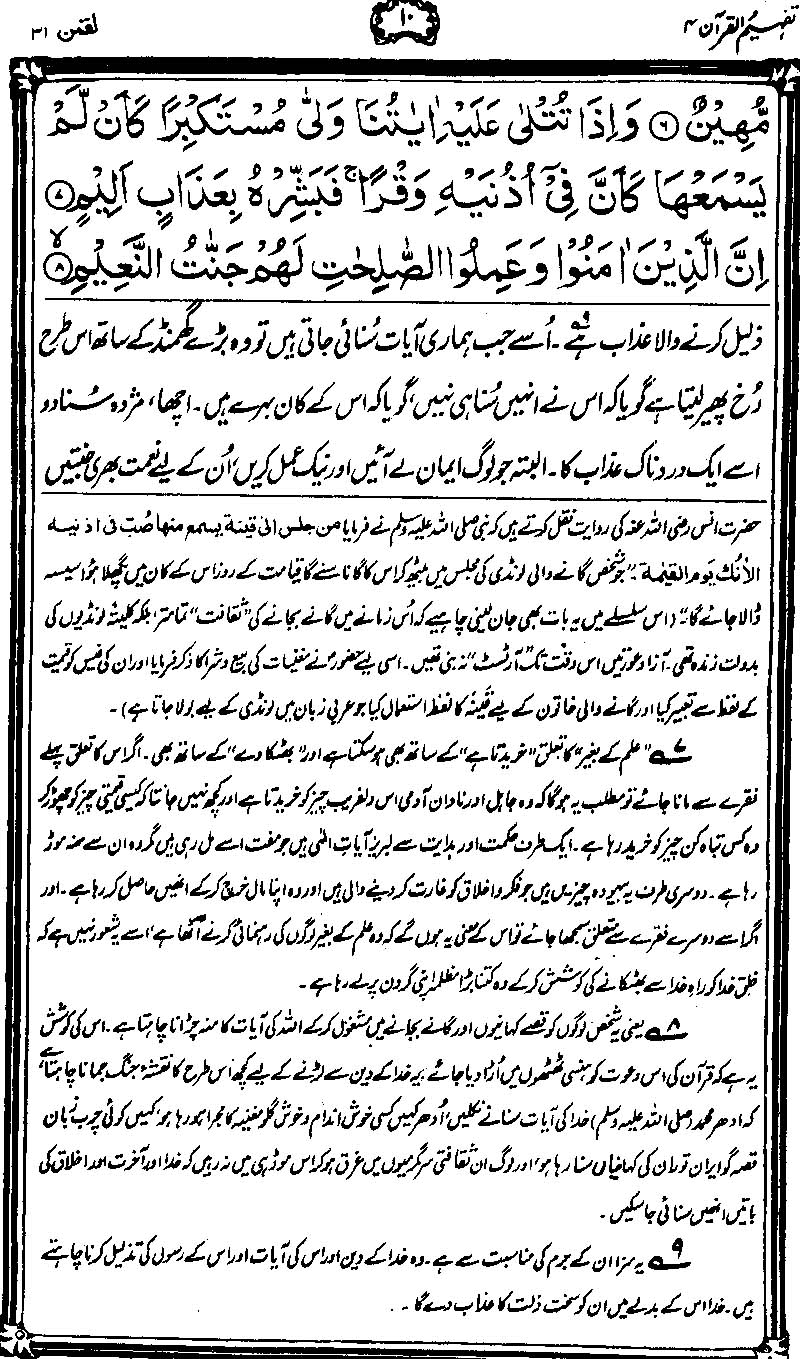 تفہیم القرآن ۴
۱۰
لقمٰن ۳۱
مُّهِيْنٌ ۶ وَاِذَا تُتْلٰى عَلَيْهِ اٰيٰتُنَا وَلّٰى مُسْتَكْبِرًا كَاَنْ لَّمْ
يَسْمَعْهَا كَاَنَّ فِيْٓ اُذُنَيْهِ وَقْرًا ۚ فَبَشِّرْهُ بِعَذَابٍ اَلِيْمٍ ۷
اِنَّ الَّذِيْنَ اٰمَنُوْا وَعَمِلُوا الصّٰلِحٰتِ لَهُمْ جَنّٰتُ النَّعِيْمِ ۸
ذلیل کرنے والا عذاب ہے۹۔ اُسے جب ہماری آیات سُنائی جاتی ہیں تو وہ بڑے گھمنڈ کے ساتھ اس طرح
رُخ پھیر لیتا ہے گویا کہ اس نے انہیں سُنا ہی نہیں، گویا کہ اس کے کان بہرے ہیں۔ اچھا، مژدہ سُنا دو
اسے ایک دردناک عذاب کا۔ البتہ جو لوگ ایمان لے آئیں اور نیک عمل کریں، اُن کے لیے نعمت بھری جنتیں
حضرت انس رضی اللہ عنہ کی روایت نقل کرتے ہیں کہ نبی صلی اللہ علیہ وسلم نے فرمایا من جلس الی قینة یسمع منها صُبّ فی اذنیه
الاٰنُك یَوم القیٰمة۔ "جو شخص گانے والی لونڈی کی مجلس میں بیٹھ کر اس کا گانا سنے گا قیامت کے روز اس کے کان میں پگھلا ہوا سیسہ
ڈالا جائے گا۔" (اس سلسلے میں یہ بات بھی جان لینی چاہیے کہ اُس زمانے میں گانے بجانے کی "ثقافت" تمام تر، بلکہ کلیتہً لونڈیوں کی
بدولت زندہ تھی۔ آزاد عورتیں اس وقت تک "آرٹسٹ" نہ بنی تھیں۔ اسی لیے حضورؐ نے مغنیات کی بیع و شرا کا ذکر فرمایا اور ان کی فیس کو قیمت
کے لفظ سے تعبیر کیا اور گانے والی خاتون کے لیے قَینَہ کا لفظ استعمال کیا جو عربی زبان میں لونڈی کے لیے بولا جاتا ہے)۔
۷ "علم کے بغیر" کا تعلق "خریدتا ہے" کے ساتھ بھی ہو سکتا ہے اور "بھٹکا دے" کے ساتھ بھی۔ اگر اس کا تعلق پہلے
فقرے سے مانا جائے تو مطلب یہ ہوگا کہ وہ جاہل اور نادان آدمی اس دلفریب چیز کو خریدتا ہے اور کچھ نہیں جانتا کہ کیسی قیمتی چیز کو چھوڑ کر
وہ کس تباہ کن چیز کو خرید رہا ہے۔ ایک طرف حکمت اور ہدایت سے لبریز آیاتِ الٰہی ہیں جو مفت اسے مل رہی ہیں مگر وہ ان سے منہ موڑ
رہا ہے۔ دوسری طرف یہ بیہودہ چیزیں ہیں جو فکر و اخلاق کو غارت کر دینے والی ہیں اور وہ اپنا مال خرچ کرکے انہیں حاصل کر رہا ہے۔ اور
اگر اسے دوسرے فقرے سے متعلق سمجھا جائے تو اس کے معنی یہ ہوں گے کہ وہ علم کے بغیر لوگوں کی رہنمائی کرنے اٹھا ہے، اسے یہ شعور نہیں ہے کہ
خلقِ خدا کو راہِ خدا سے بھٹکانے کی کوشش کرکے وہ کتنا بڑا مظلمہ اپنی گردن پر لے رہا ہے۔
۸ یعنی یہ شخص لوگوں کو قصے کہانیوں اور گانے بجانے میں مشغول کرکے اللہ کی آیات کا منہ چڑانا چاہتا ہے۔ اس کی کوشش
یہ ہے کہ قرآن کی اس دعوت کو ہنسی ٹھٹھوں میں اُڑا دیا جائے۔ یہ خدا کے دین سے لڑنے کے لیے کچھ اس طرح کا نقشۂ جنگ جمانا چاہتا ہے
کہ ادھر محمد (صلی اللہ علیہ وسلم) خدا کی آیات سنانے نکلیں، اُدھر کہیں کسی خوش اندام و خوش گلو مغنیہ کا مجرا ہو رہا ہو، کہیں کوئی چرب زبان
قصہ گو ایران توران کی کہانیاں سنا رہا ہو، اور لوگ ان ثقافتی سرگرمیوں میں غرق ہو کر اس موڈ ہی میں نہ رہیں کہ خدا اور آخرت اور اخلاق کی
باتیں انہیں سنائی جا سکیں۔
۹ یہ سزا ان کے جرم کی مناسبت سے ہے۔ وہ خدا کے دین اور اس کی آیات اور اس کے رسول کی تذلیل کرنا چاہتے
ہیں۔ خدا اس کے بدلے میں ان کو سخت ذلت کا عذاب دے گا۔